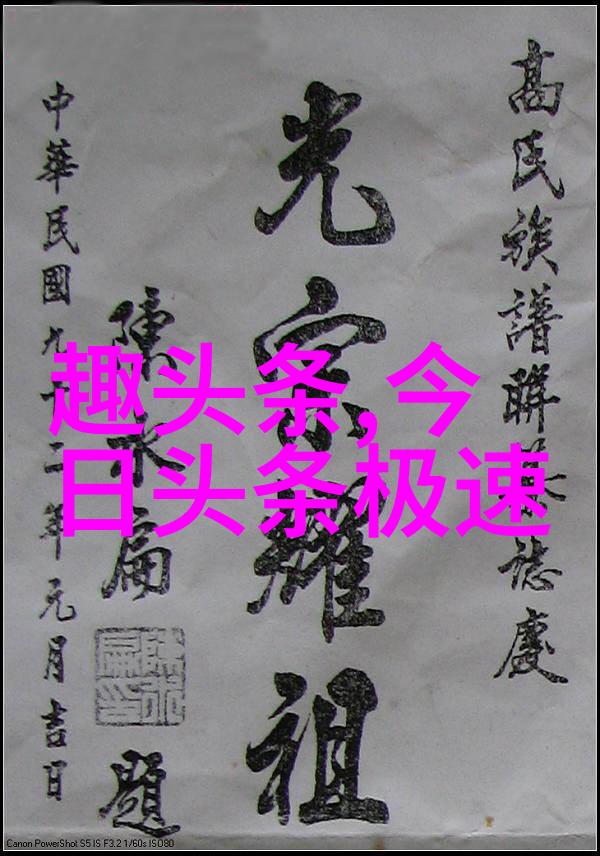 高氏族譜聯誌慶
光宗耀祖
陳水扁
陳水扁印
題
中華民國九十二年元月吉日
趣头条,今
日头条极速
Canon PowerShot S5 IS F3.2 1/60s ISO80